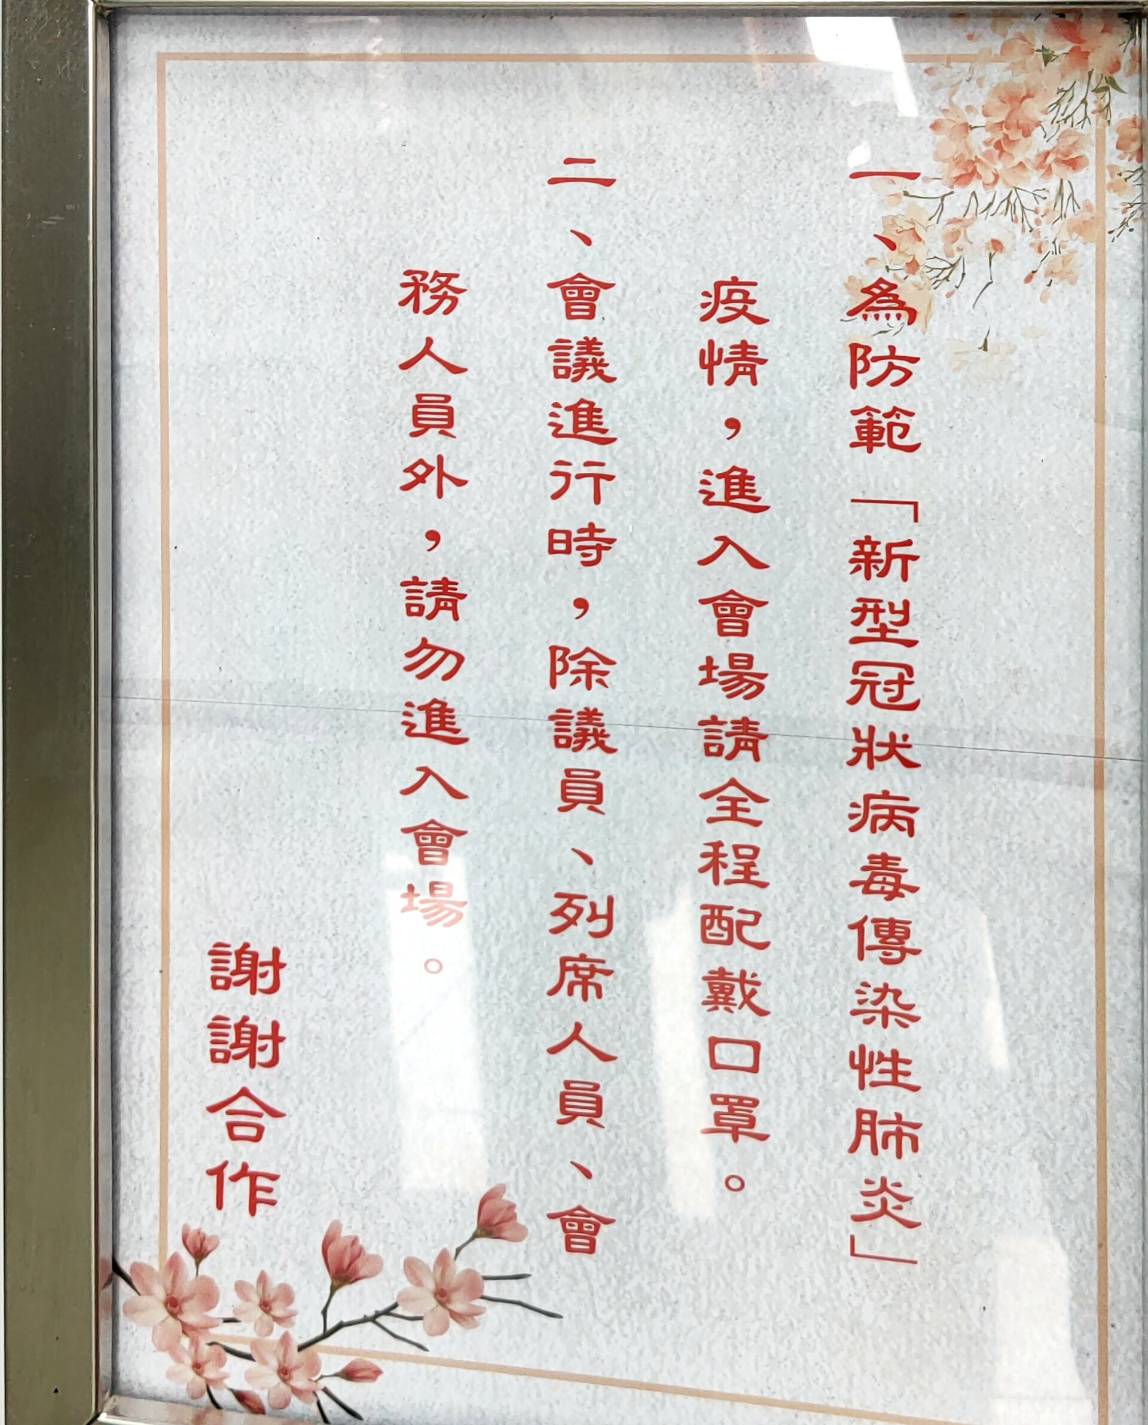 一、為防範「新型冠狀病毒傳染性肺炎」
疫情，進入會場請全程配戴口罩。
二、會議進行時，除議員、列席人員、會
務人員外，請勿進入會場。
謝謝合作